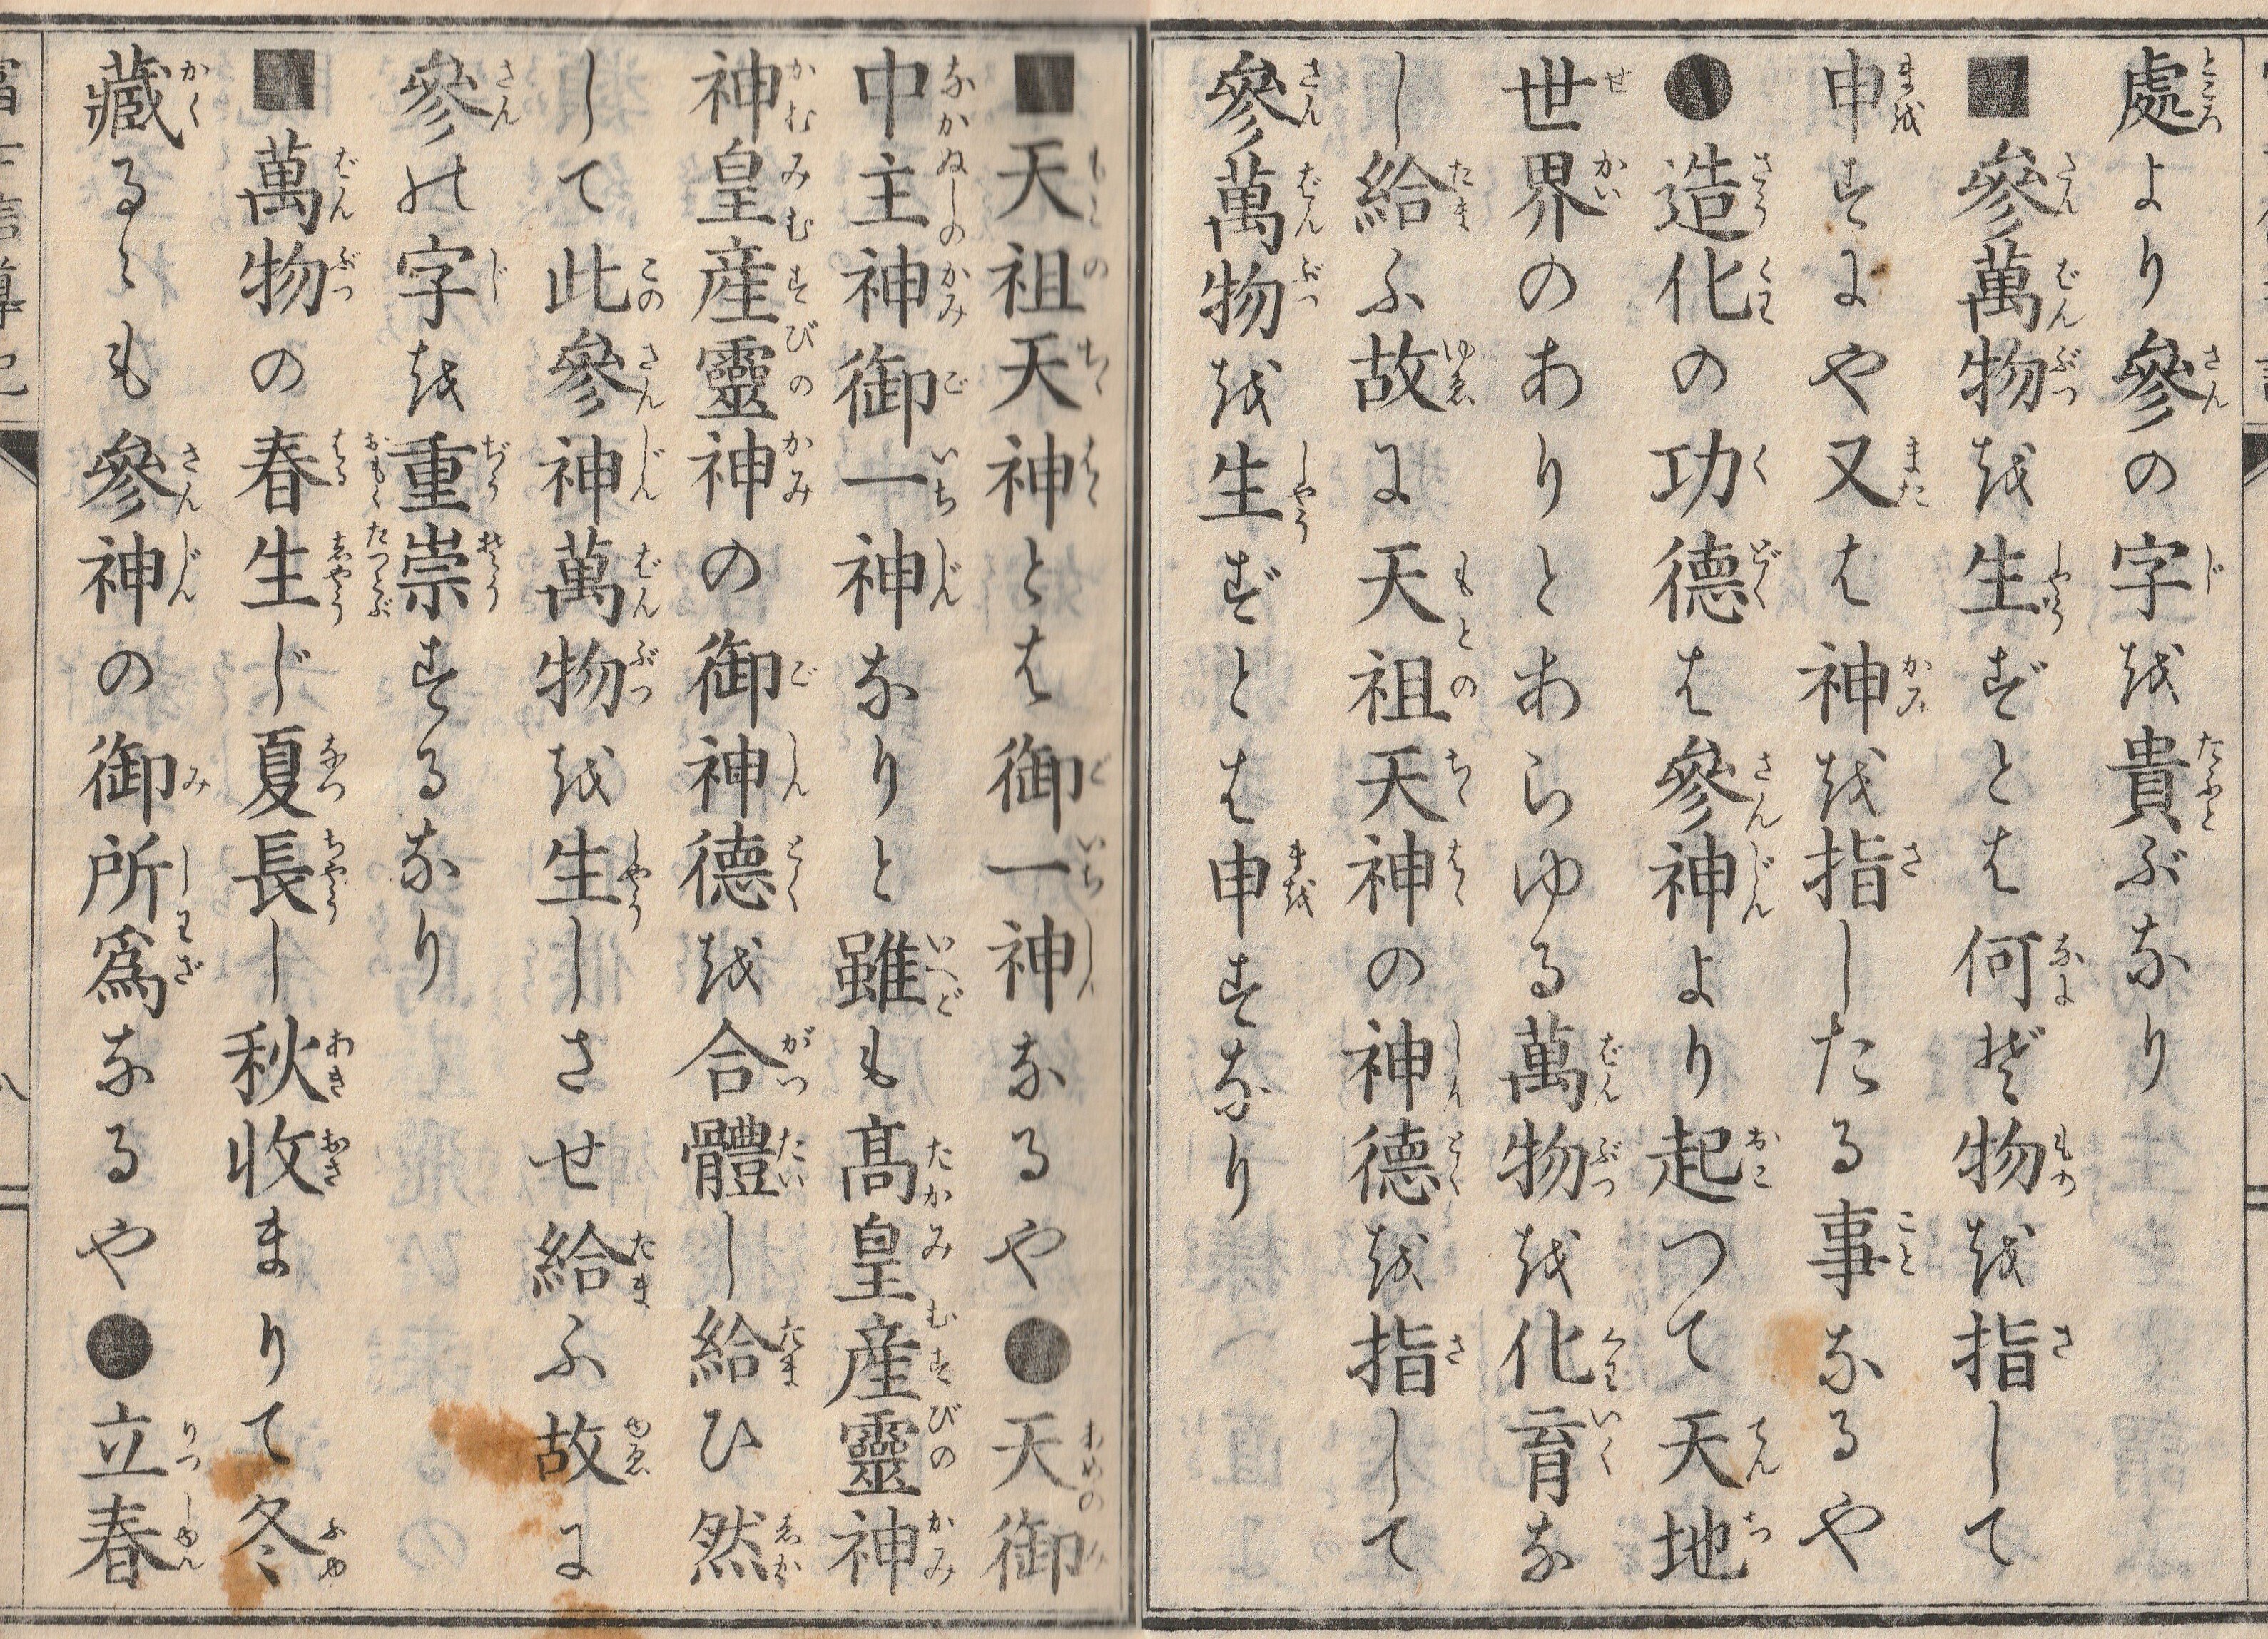 處より參の字を貴ぶなり
■參萬物を生ずとは何ぞ物を指して
申すにや又は神を指したる事なるや
●造化の功德は參神より起つて天地
世界のありとあらゆる萬物を化育な
し給ふ故に天祖天神の神德を指して
參萬物を生ずとは申すなり
■天祖天神とは御一神なるや●天御
中主神御一神なりと雖も髙皇産靈神
神皇産靈神の御神德を合體し給ひ然
して此參神萬物を生しさせ給ふ故に
參の字を重崇するなり
■萬物の春生じ夏長し秋收まりて冬
藏るゝも參神の御所爲なるや●立春